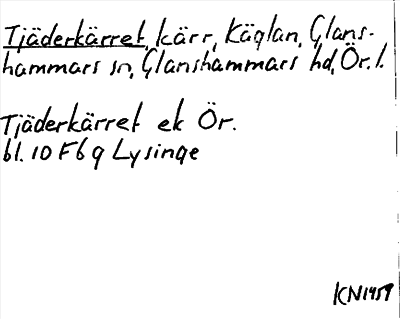 Tjäderkärret, kärr, Käglan, Glans-
hammars sn, Glanshammars hd, Ör. l.
Tjäderkärret ek Ör.
bl. 10 F 6 g Lysinge
KN1959